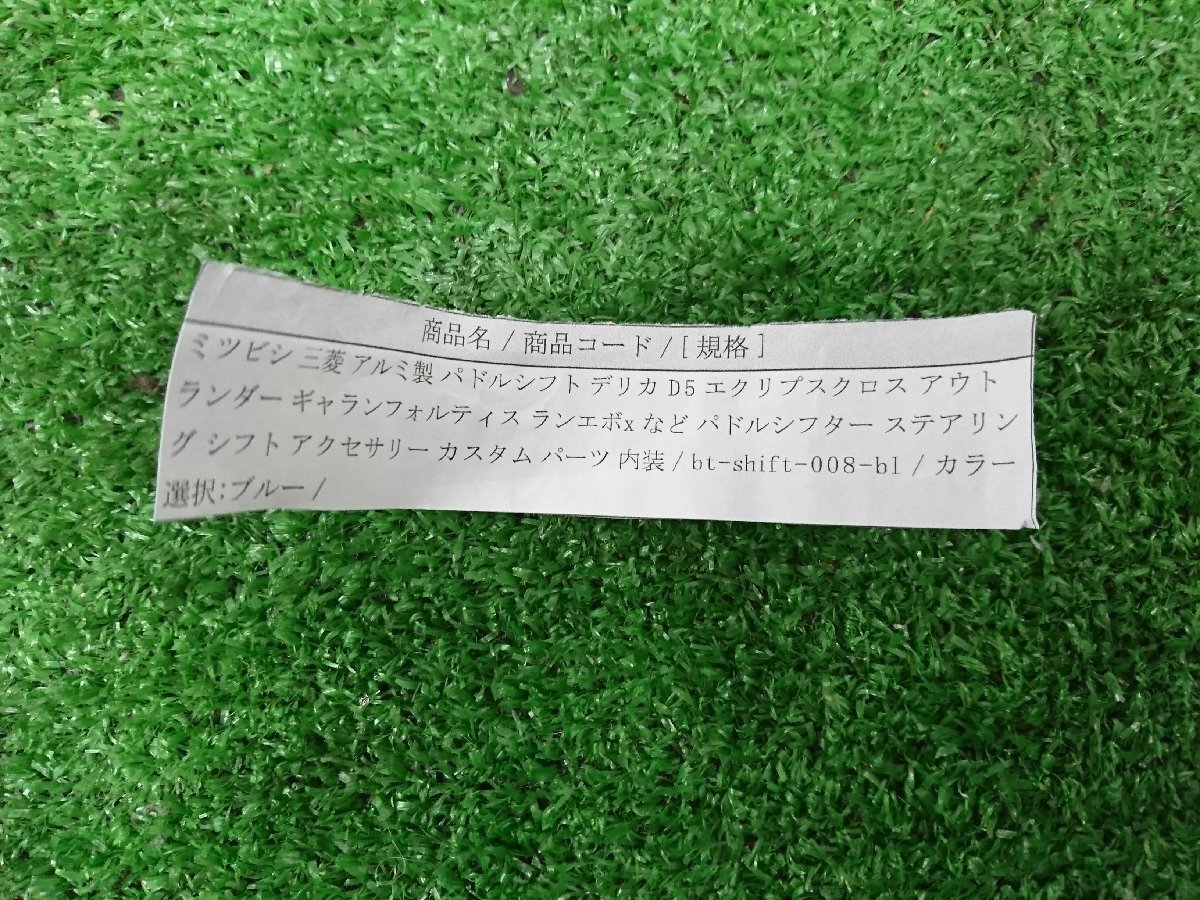 商品名 / 商品コード / [ 規格 ]
ミツビシ 三菱 アルミ製 パドルシフト デリカ D5 エクリプスクロス アウト
ランダー ギャランフォルティス ランエボx など パドルシフター ステアリン
グ シフト アクセサリー カスタム パーツ 内装 / bt-shift-008-bl / カラー
選択:ブルー /